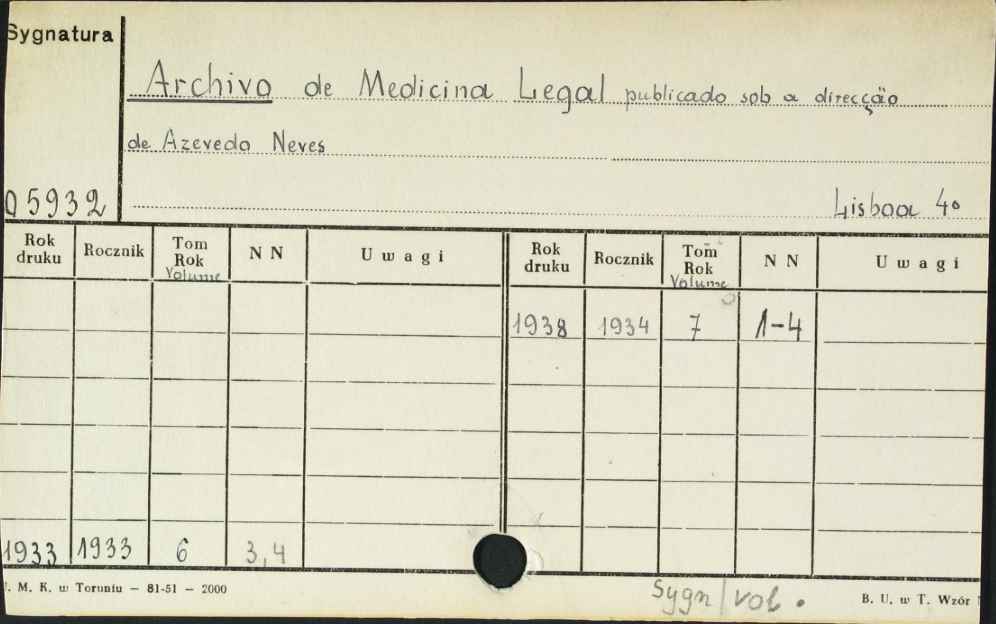 Sygnatura
Archivo de Medicina Legal publicado sob a direcção
de Azevedo Neves
05932
Lisboa 4º
Rok druku Rocznik Tom Rok Volume N N Uwagi Rok druku Rocznik Tom Rok Volume N N Uwagi
1938 1934 7 1-4
1933 1933 6 3,4
. M. K. w Toruniu — 81-51 — 2000
Sygn/vol.
B. U. w T. Wzór